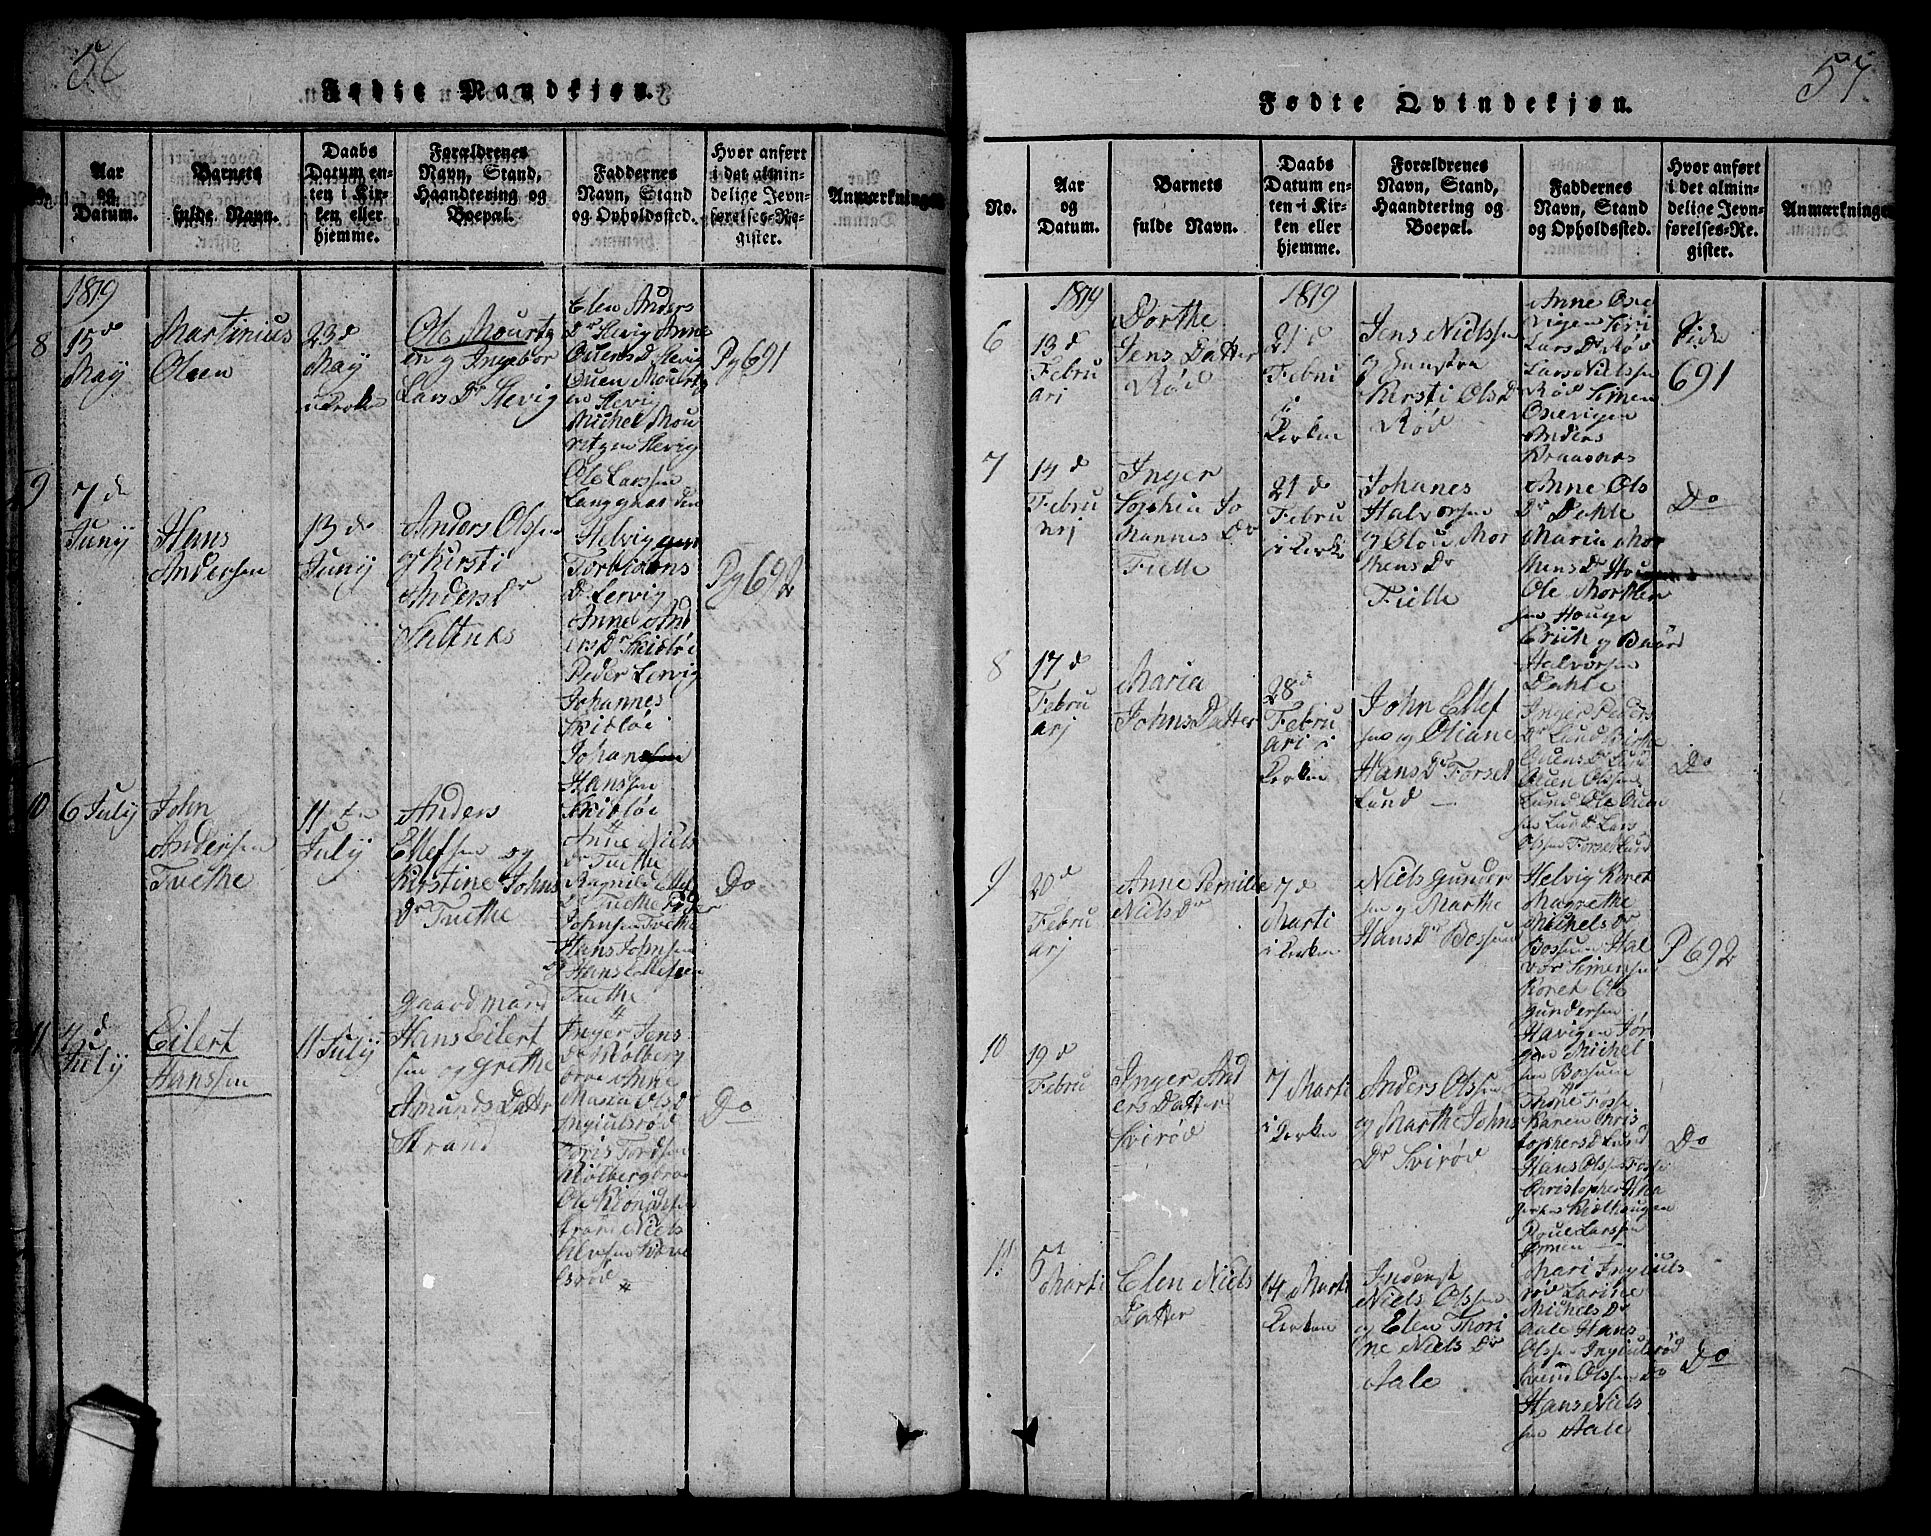 56
Fødte Mandkjøn.
No.
Aar
og
Datum.
Barnets
fulde Navn.
Daabs
Datum en-
ten i Kir-
ken eller
hjemme.
Forældrenes
Navn, Stand,
Haandtering og
Boepæl.
Faddernes
Navn, Stand
og Opholdssted.
Hvor anført
i det almin-
delige Jevn-
førelses-Re-
gister.
Anmærkninger
1819
8
15d
May
Martinius
Olsen
23d
May
i Kirken
Ole Mourtz
en og Ingebor
Lars Dr Slevig
Elen Anders
Dr Slevig Anne
Ouens D Slevig
Ouen Mourtz
en Slevig
Michel Mou
ritzen Slevig
Ole Larssen
Langgaarden
Pg 691
9
7de
Junij
Hans
Andersen
13de
Junij
Anders Olssen
og Kirsti
Anders Dr
Saltnes
Helvig
Torbiørns
D Lervig
Anne And
ers Dr Skidløi
Peder Lervig
Johannes
Skidløi
Johan
Hanssen
Skidløi
Pg 692
10
6 Julij
John
Andersen
Tuethe
11te
Julij
Anders
Ellefsen og
Kirstine Johns
Dr Tuethe
Anne Niels
Dr Tuethe
Ragnild
Dr Tuethe
Johnsen Tuethe
Hans Johnsen
og Hans Ellefsen
Tuethe
Do
11
Julij
Eilert
Hanssen
11 Julij
Gaardmand
Hans Eilert
sen og Grethe
Amunds Datter
Strand
Inger Jens
Dr Mølberg
Anne
Maria Ols D
Ingiulsrød
Joris Tordsen
Mølberg
Ole
Niels
Do
57
Fødte Qvindekjøn.
No.
Aar
og
Datum.
Barnets
fulde Navn.
Daabs
Datum en-
ten i Kir-
ken eller
hjemme.
Forældrenes
Navn, Stand,
Haandtering og
Boepæl.
Faddernes
Navn, Stand
og Opholdssted.
Hvor anført
i det almin-
delige Jevn-
førelses-Re-
gister.
Anmærkninger
1819
1819
6
13d
Febru
arj
Dorthe
Jens Datter
Rød
21d
Febru
i
Kirken
Jens Nielssen
og
Kirsti Ols Dr
Rød
Anne Ose
vigen Siri
Lars Dr Rød
Lars Nielssen
Rød Simen
Osevigen
Anders
Kraasnes
Pide
691
7
14d
Febru
arj
Inger
Sophia Jo
hannes Dr
Fielle
21d
Febru
i Kirke
Johanes
Halvorsen
og Olou Mor
thens Dr
Fielle
Anne Ols
Dr Dehle
Maria Mor
thens Dr
Ole Morthen
sen Houge
Erich og Baard
Halvorsen
Dehle
Do
8
17d
Febru
arj
Maria
Johns Datter
28d
Febru
ari i
Kirken
John Ellef
sen og Oliane
Hans Dr Forset
Lund
Inger Peders
Dr Lund Birthe
Ouens Dr Lund
Ouen Olssen
Lund Ole Ouen
sen Lund Lars
Olssen Forsetlund
Do
9
20d
Febru
arj
Anne Pernille
Niels Dr
7d
Marti
i Kirken
Niels Gunder
sen og Marthe
Hans Dr Bossum
Helvig Koret
Magrethe
Michels Dr
Bossum Hal
vor Simensen
Koret Ole
Gundersen
Havigen Jør
gen Michel
sen Bossum
P 692
10
19d
Febru
Inger And
ers Datter
Svirød
7 Marti
i Kirken
Anders Olssen
og Marthe Johns
Dr Svirød
Thone Fosse
Karen Chris
tophers D Lund
Hans Olssen Fosse
Christopher
Kiølhaugen
Poul Larssen
Do
11
5t
Marti
Elen Niels
Datter
14 Marti
Kirken
Inderst
Niels Olssen
og Elen Thori
ne Niels Dr
Aale
Mari Ingiuls
rød Larine
Michels Dr
Aale Hans
Olssen Ingiulsrød
Svend Olssen Do
Hans Niels
sen Aale
Do